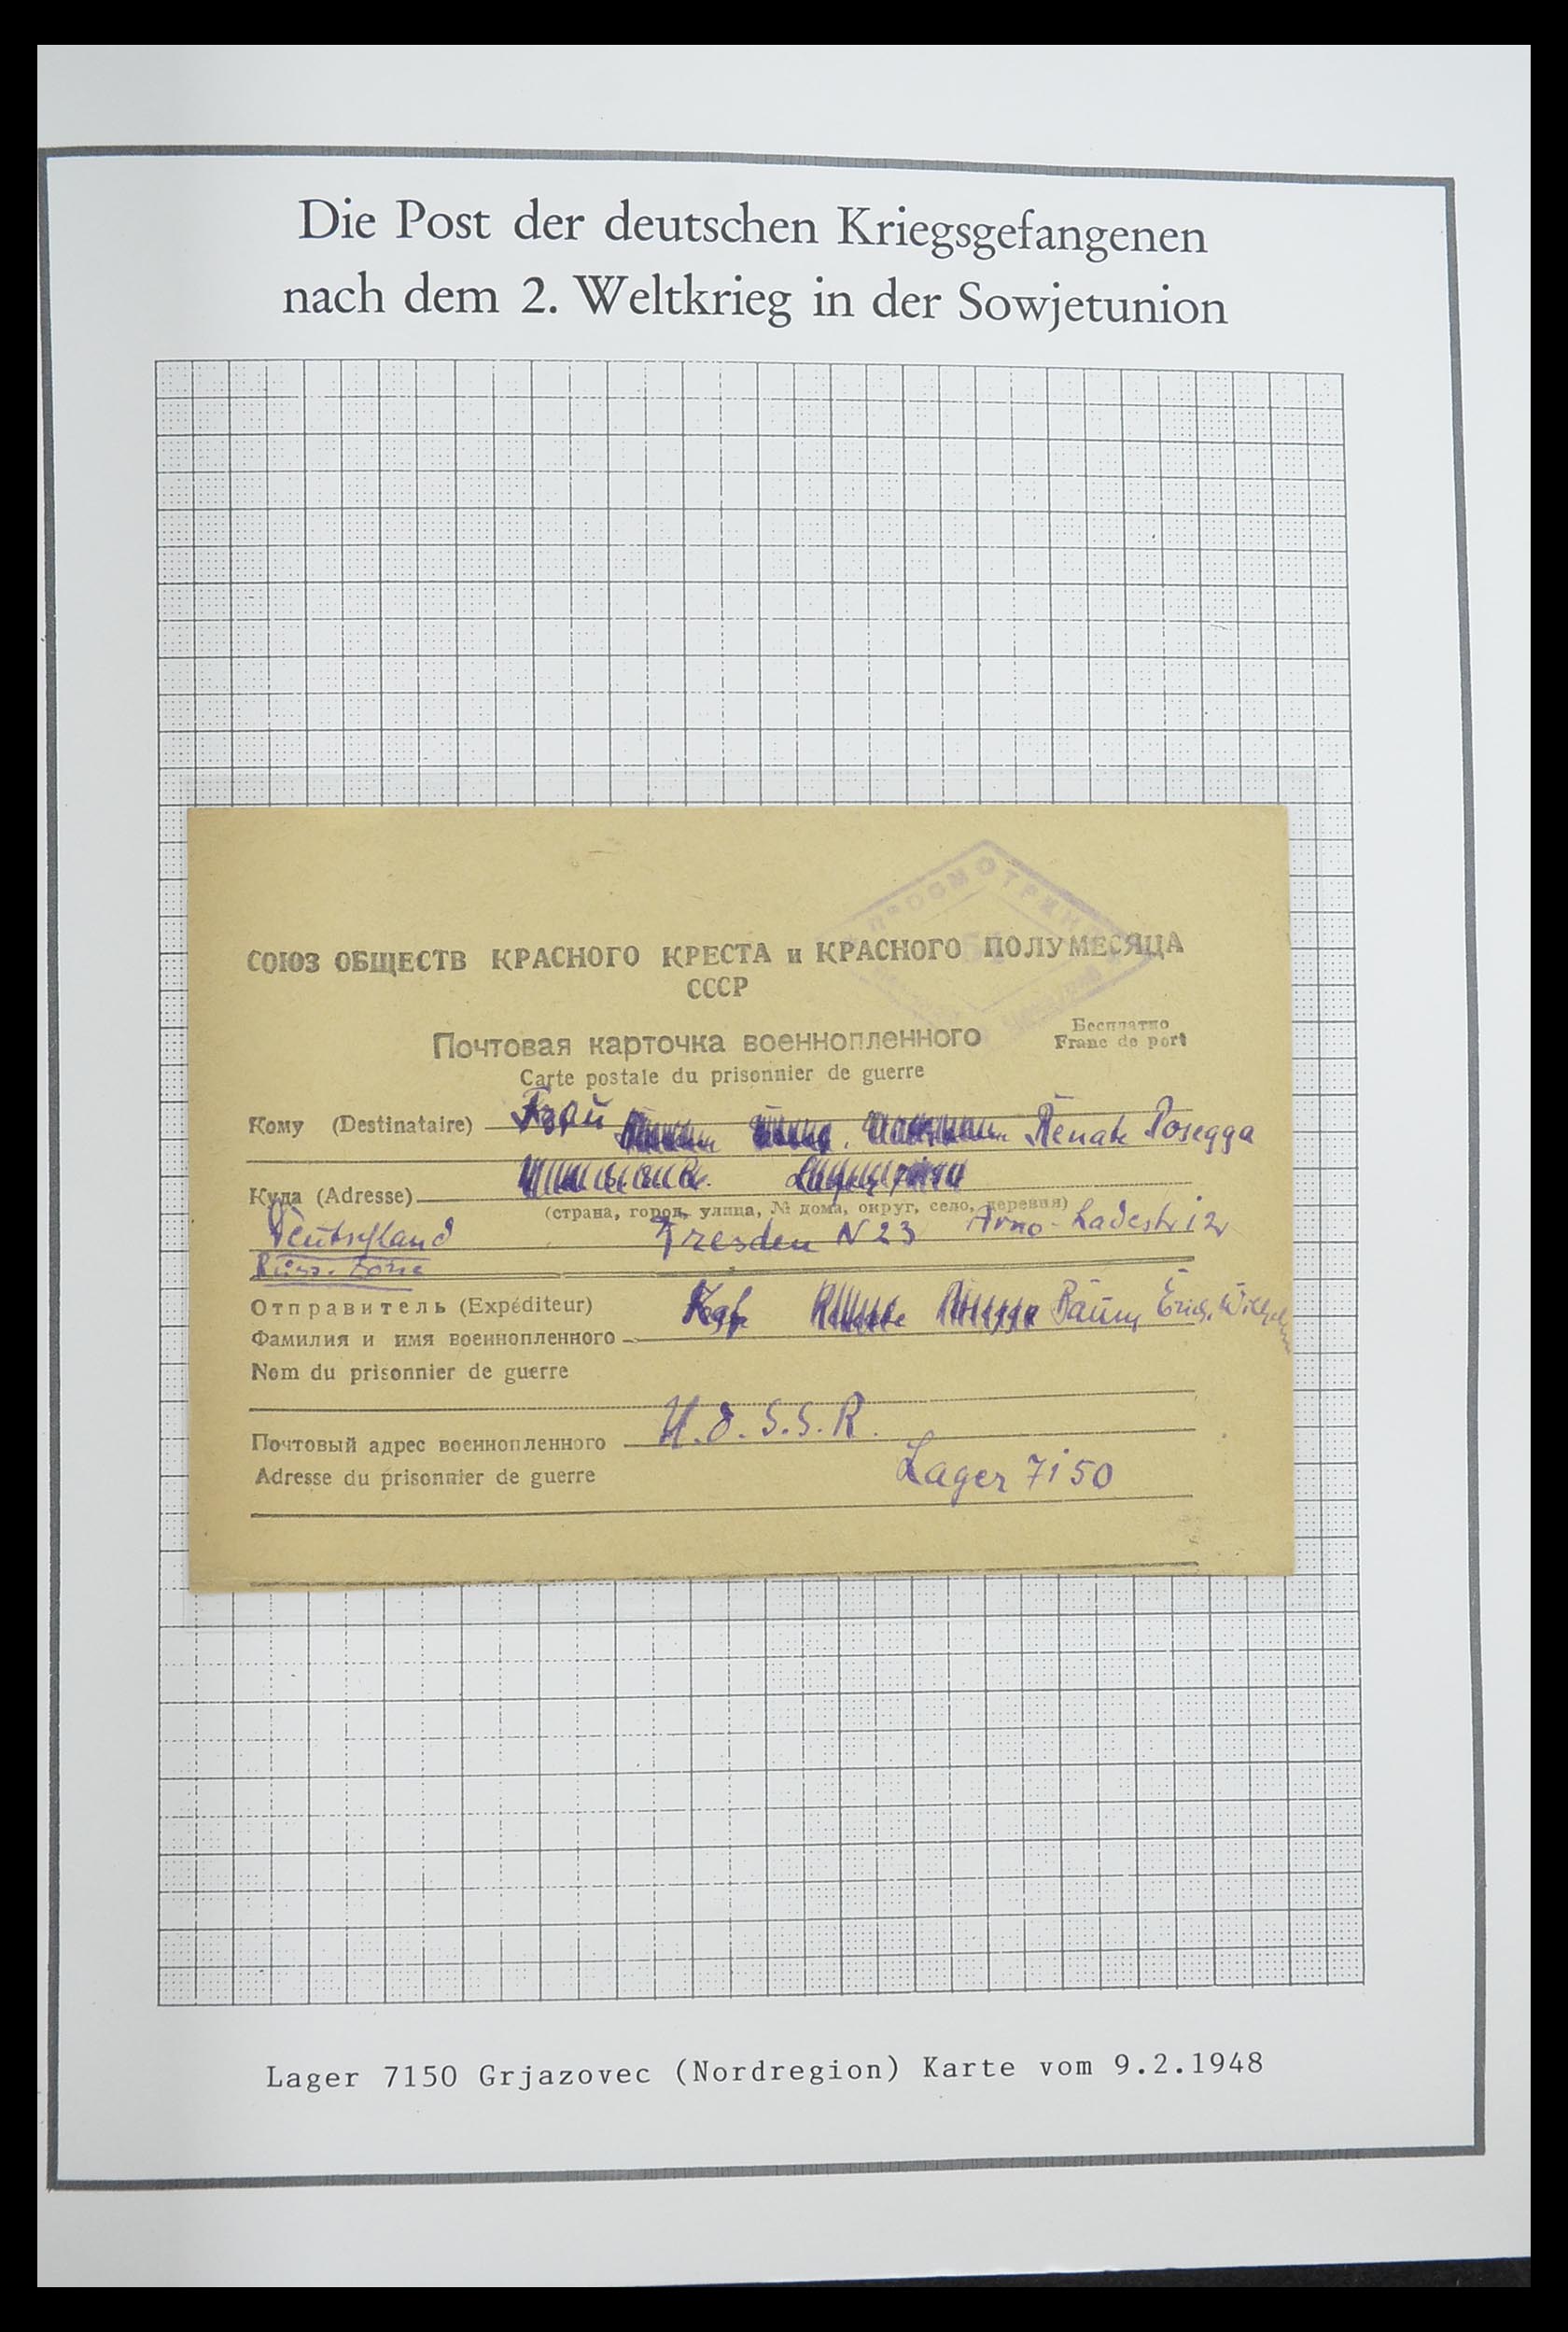 Die Post der deutschen Kriegsgefangenen
nach dem 2. Weltkrieg in der Sowjetunion
СОЮЗ ОБЩЕСТВ КРАСНОГО КРЕСТА и КРАСНОГО ПОЛУМЕСЯЦА
СССР
Почтовая карточка военнопленного
Бесплатно
Franc de port
Carte postale du prisonnier de guerre
Кому (Destinataire) Frau Renate Posegga
Куда (Adresse)
(страна, город, улица, № дома, округ, село, деревня)
Deutschland Dresden N 23 Arno-
Russ. Zone
Отправитель (Expéditeur) Baum, Erich, Wilhelm
Фамилия и имя военнопленного
Nom du prisonnier de guerre
Почтовый адрес военнопленного U.d.S.S.R.
Adresse du prisonnier de guerre Lager 7150
Lager 7150 Grjazovec (Nordregion) Karte vom 9.2.1948